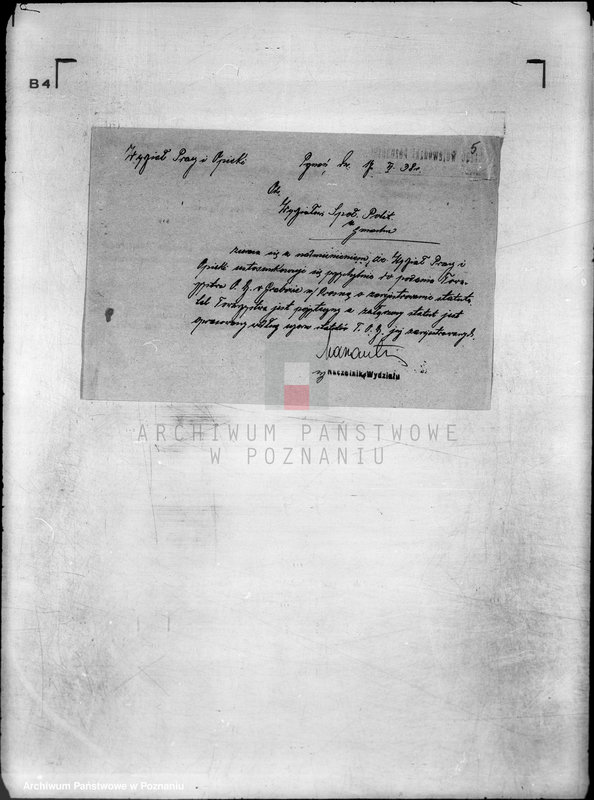 B4
5
Wydział Pracy i Opieki
Poznań, dn. 17. II. 38 r.
Do
Wydziału Społ. Polit.
w gmachu
zwraca się z nadmienieniem, że Wydział Pracy i
Opieki ustosunkowuje się przychylnie do podania Towa-
rzystwa O. G. w o zarejestrowanie statutu,
Towarzystwa jest pożyteczny a załączony statut jest
opracowany według wzoru statutów T. O. G. już zarejestrowanych.
Naczelnik Wydziału
ARCHIWUM PAŃSTWOWE
W POZNANIU
Archiwum Państwowe w Poznaniu